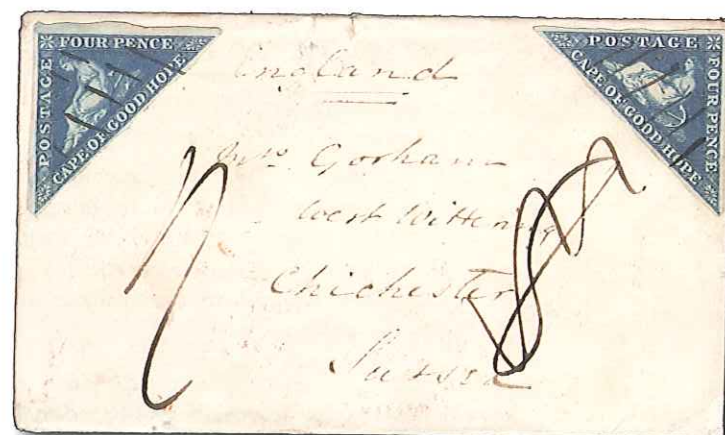 FOUR PENCE
POSTAGE
CAPE OF GOOD HOPE
POSTAGE
FOUR PENCE
CAPE OF GOOD HOPE
England
Mrs Gorham
West Wittering
Chichester
Sussex